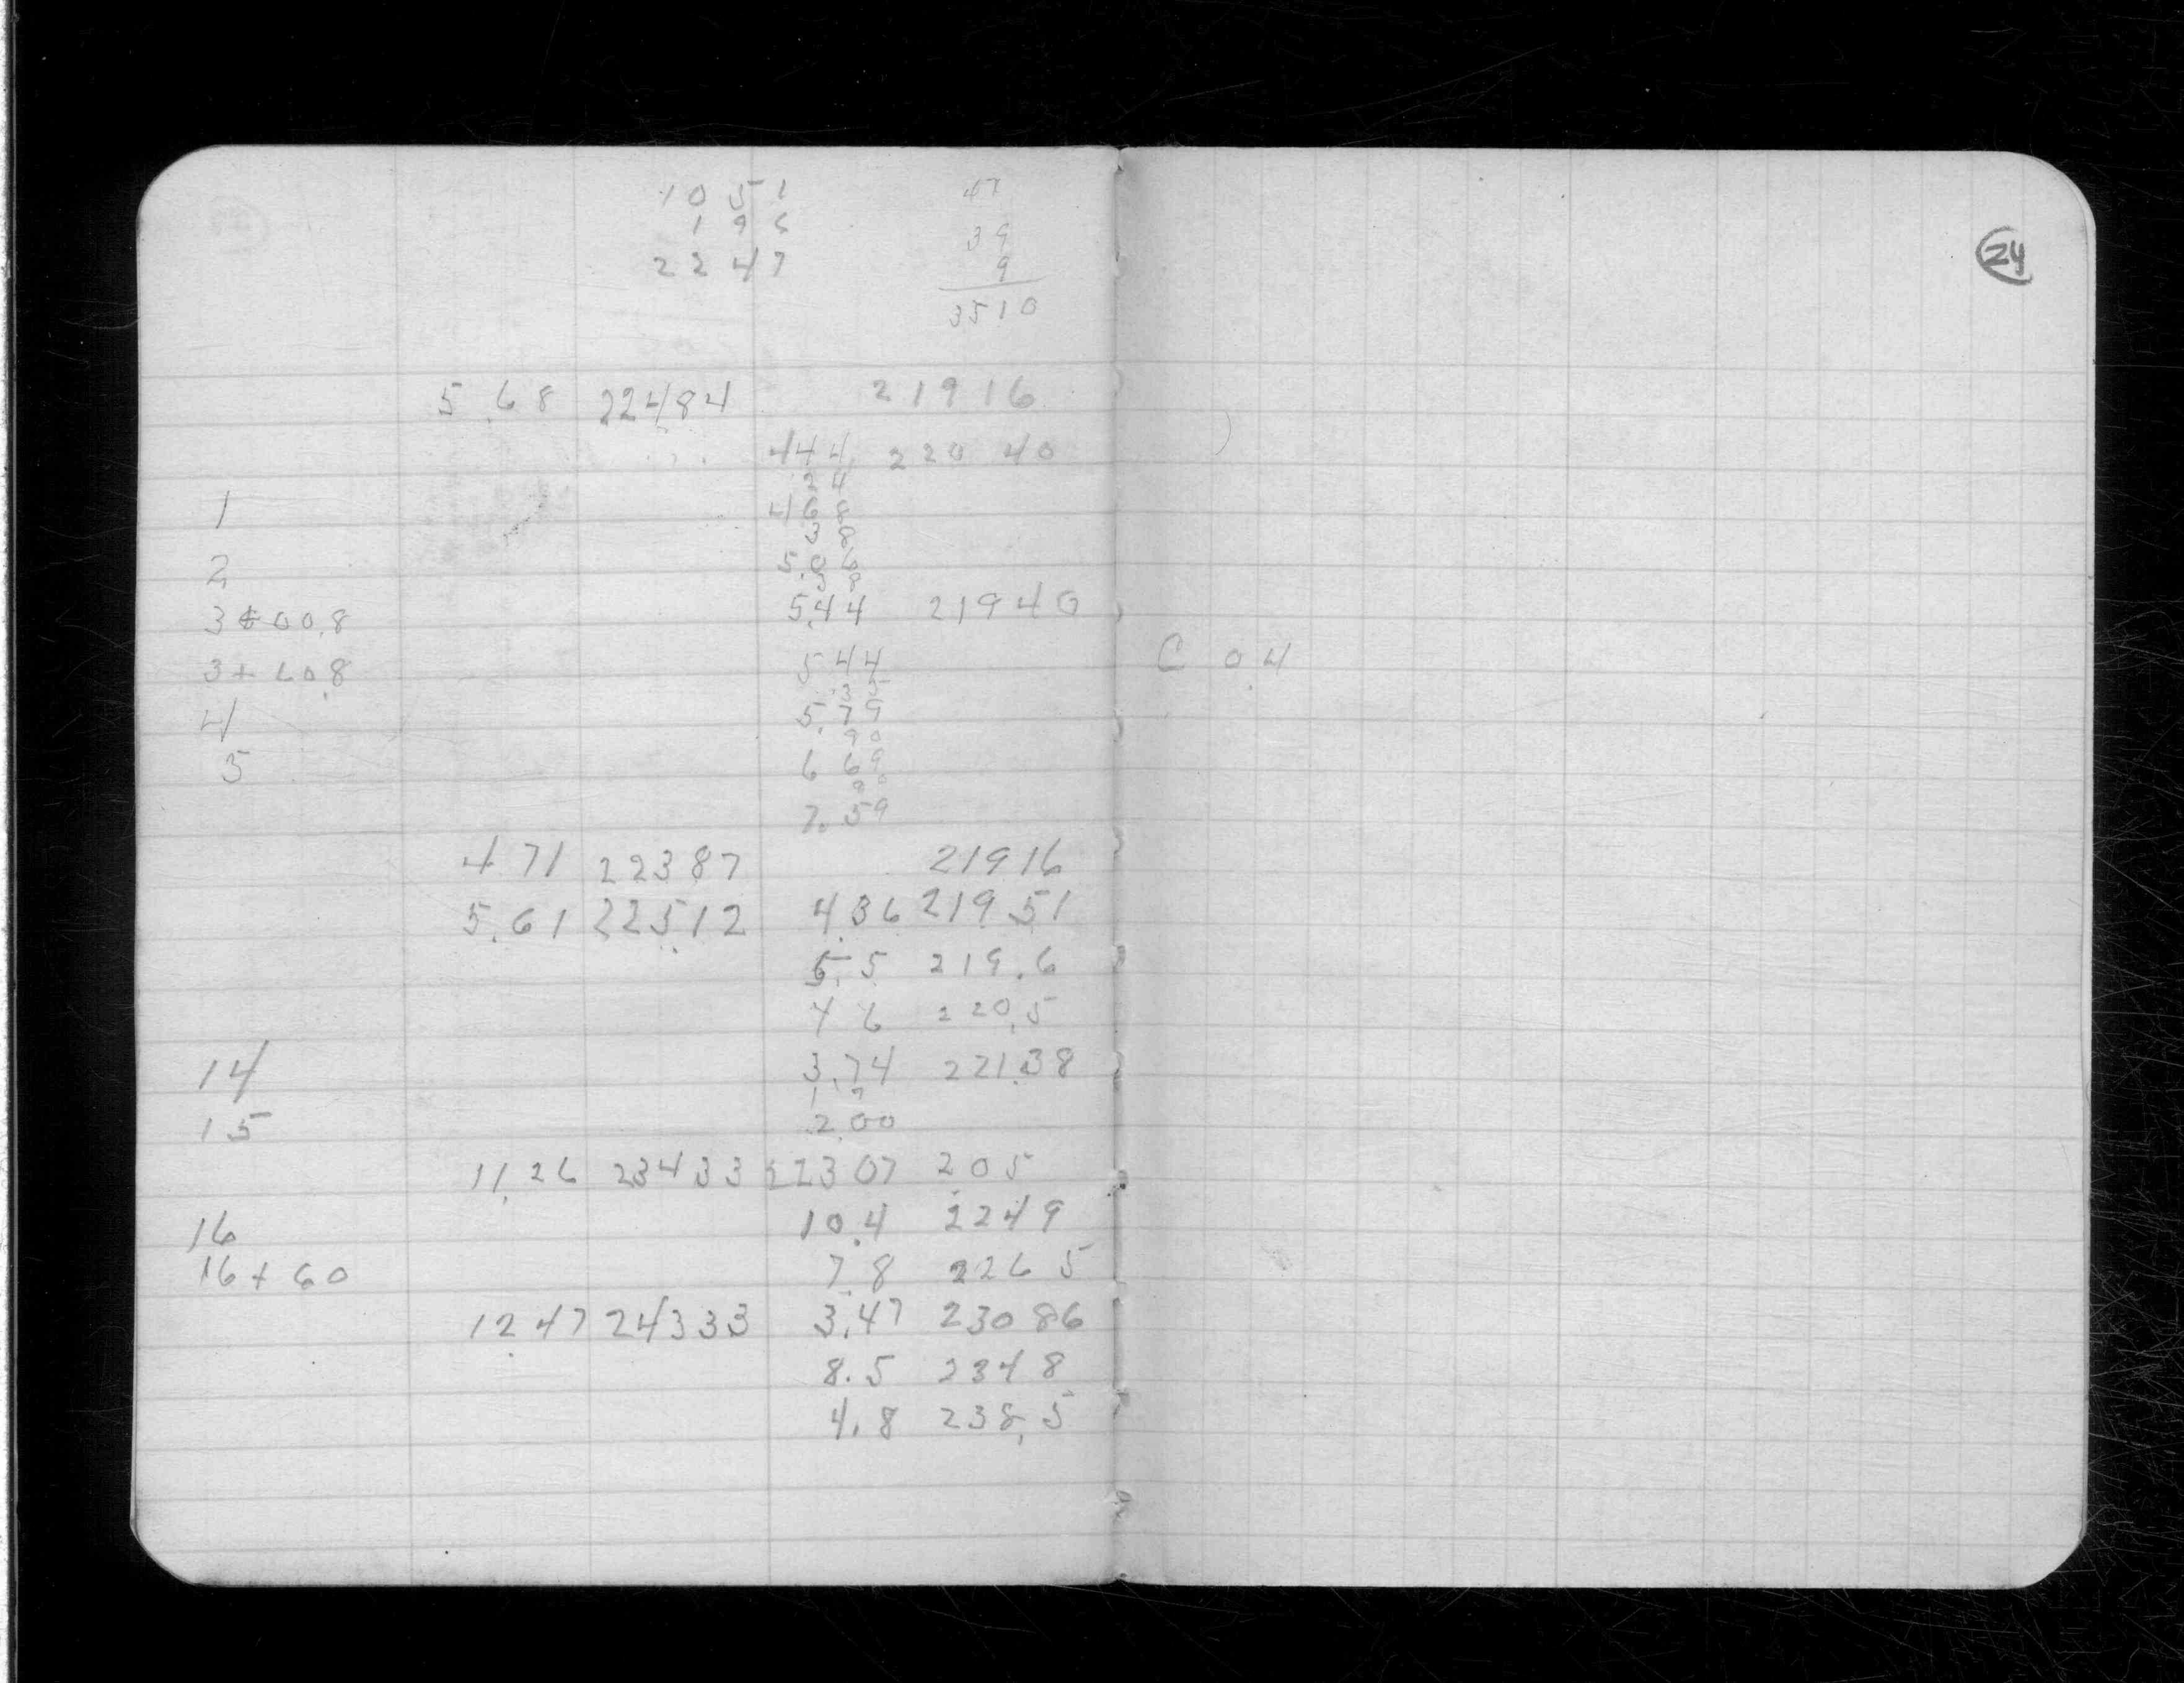 10 51 47
1 96 39
22 47 9
3510
24
5.68 22484 21916
444 220 40
24
1 468
38
2 5.06
38
3+00.8 5.44 21940
3+60.8 544 C 0.4
35
4 5.79
90
5 6 69
90
7.59
4 71 22387 21916
5.61 225.12 4.36 219 51
5.5 219.6
4 6 220.5
14 3.74 221.38
15 2.00
11.26 23433 22307 205
16 10.4 2249
16+60 7.8 226 5
12.47 24333 3.47 23086
8.5 234 8
4.8 238.5